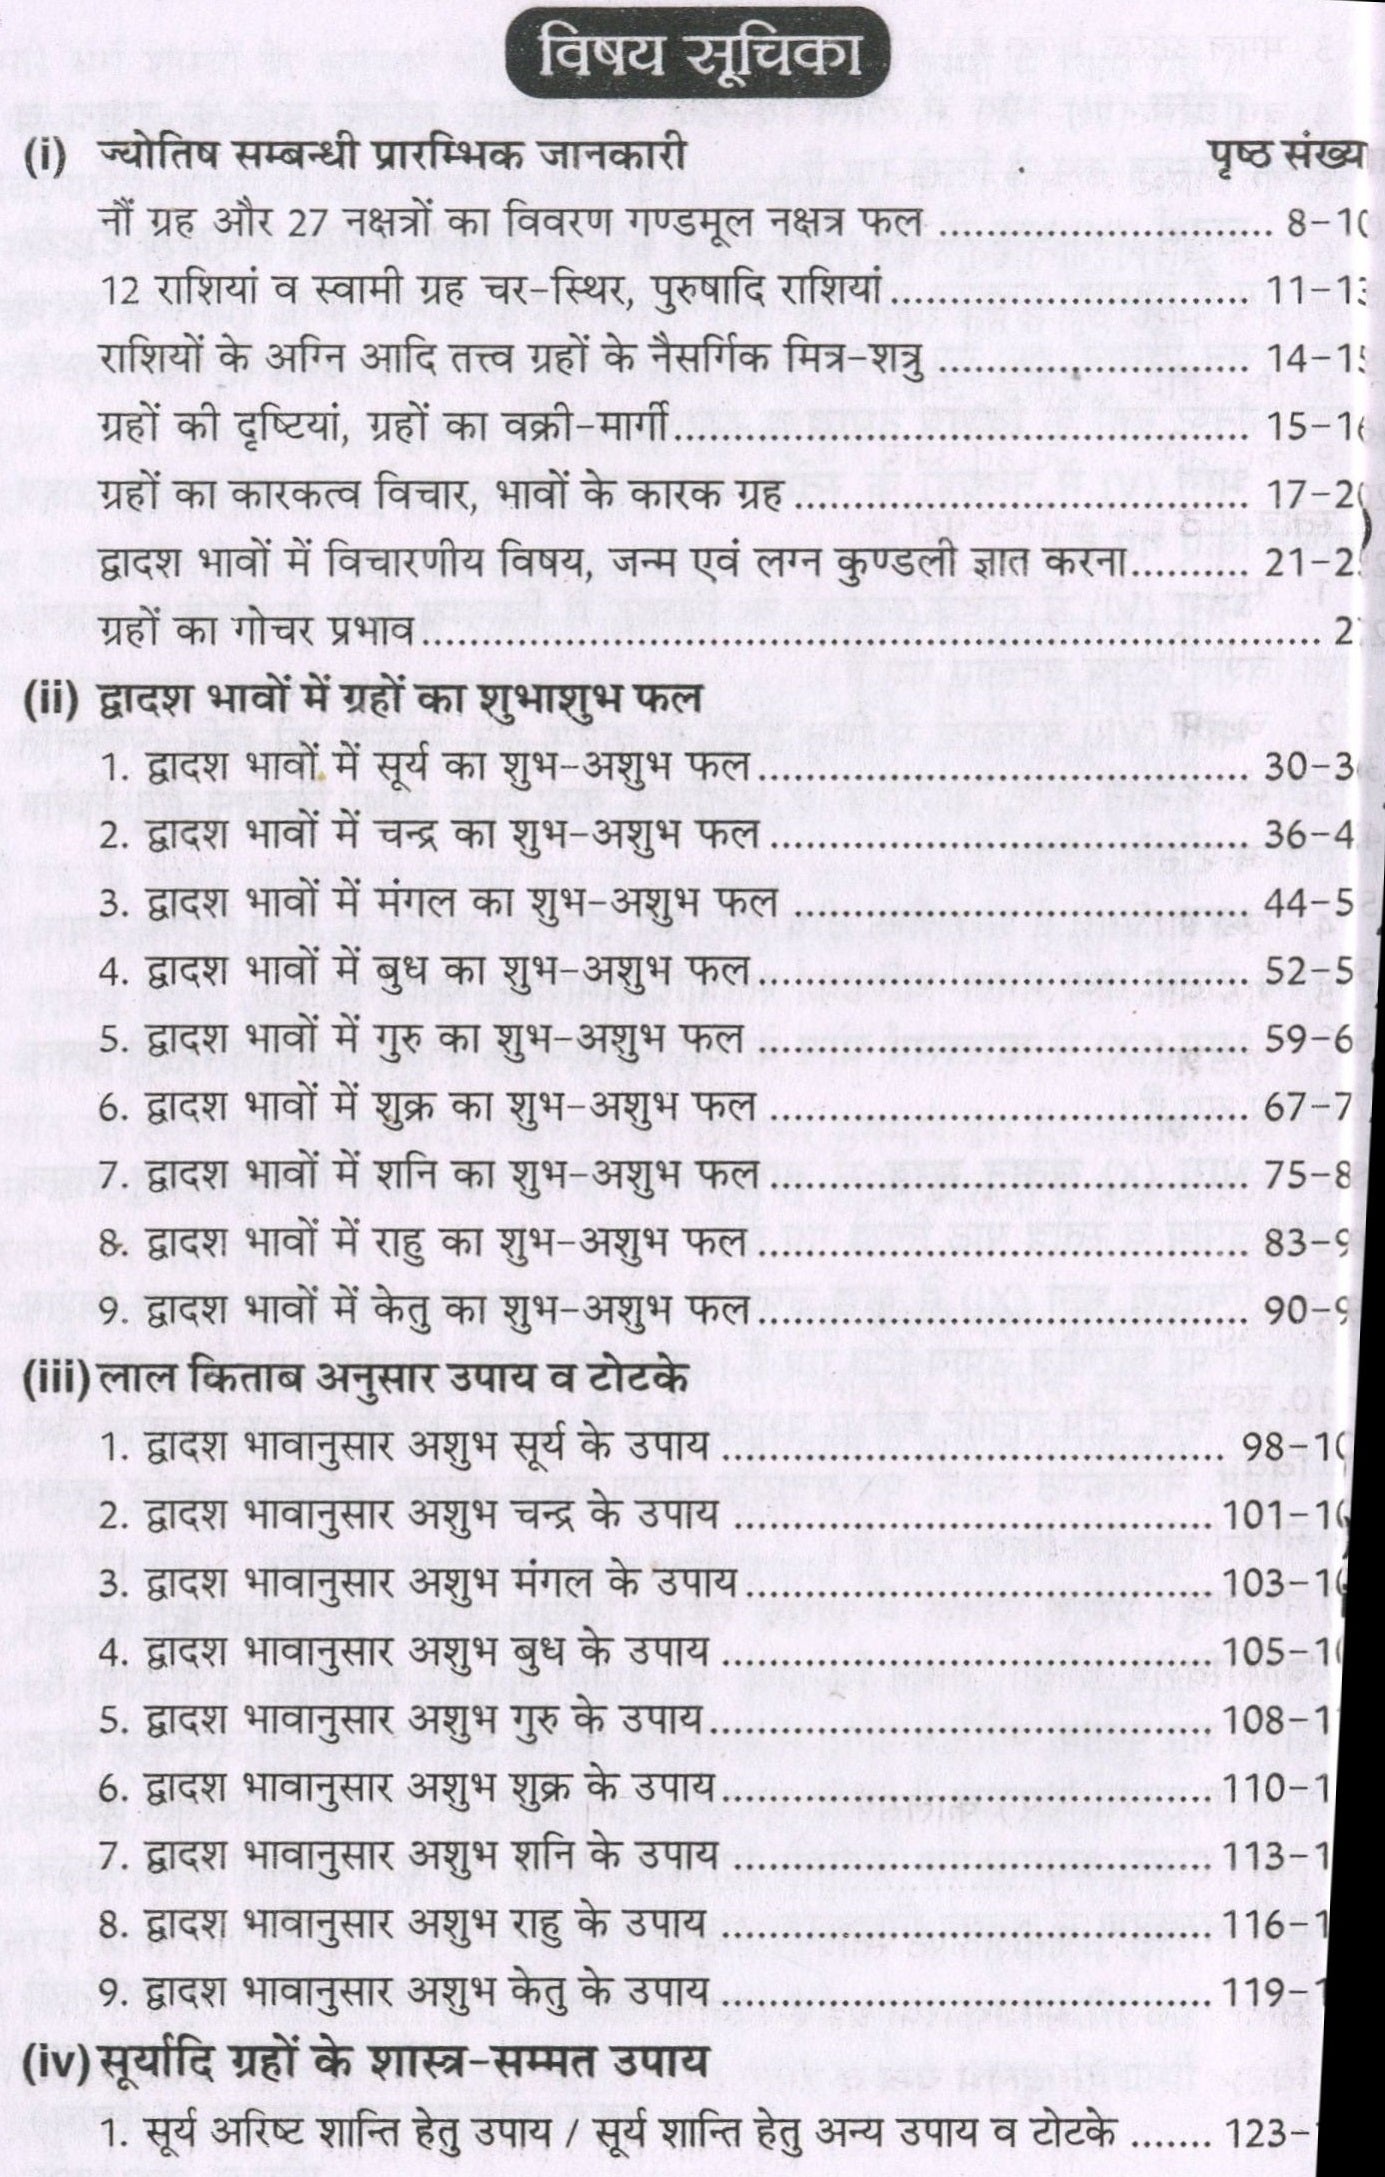 विषय सूचिका
(i) ज्योतिष सम्बन्धी प्रारम्भिक जानकारी पृष्ठ संख्या
नौं ग्रह और 27 नक्षत्रों का विवरण गण्डमूल नक्षत्र फल ........................... 8-10
12 राशियां व स्वामी ग्रह चर-स्थिर, पुरुषादि राशियां............................. 11-13
राशियों के अग्नि आदि तत्त्व ग्रहों के नैसर्गिक मित्र-शत्रु ......................... 14-15
ग्रहों की दृष्टियां, ग्रहों का वक्री-मार्गी.............................................. 15-16
ग्रहों का कारकत्व विचार, भावों के कारक ग्रह .................................... 17-20
द्वादश भावों में विचारणीय विषय, जन्म एवं लग्न कुण्डली ज्ञात करना.......... 21-2
ग्रहों का गोचर प्रभाव......................................................................... 2
(ii) द्वादश भावों में ग्रहों का शुभाशुभ फल
1. द्वादश भावों में सूर्य का शुभ-अशुभ फल........................................ 30-3
2. द्वादश भावों में चन्द्र का शुभ-अशुभ फल ....................................... 36-4
3. द्वादश भावों में मंगल का शुभ-अशुभ फल ..................................... 44-5
4. द्वादश भावों में बुध का शुभ-अशुभ फल........................................ 52-5
5. द्वादश भावों में गुरु का शुभ-अशुभ फल ........................................ 59-6
6. द्वादश भावों में शुक्र का शुभ-अशुभ फल ....................................... 67-7
7. द्वादश भावों में शनि का शुभ-अशुभ फल ....................................... 75-8
8. द्वादश भावों में राहु का शुभ-अशुभ फल ........................................ 83-9
9. द्वादश भावों में केतु का शुभ-अशुभ फल........................................ 90-9
(iii) लाल किताब अनुसार उपाय व टोटके
1. द्वादश भावानुसार अशुभ सूर्य के उपाय ......................................... 98-10
2. द्वादश भावानुसार अशुभ चन्द्र के उपाय ....................................... 101-10
3. द्वादश भावानुसार अशुभ मंगल के उपाय...................................... 103-10
4. द्वादश भावानुसार अशुभ बुध के उपाय ........................................ 105-10
5. द्वादश भावानुसार अशुभ गुरु के उपाय......................................... 108-1
6. द्वादश भावानुसार अशुभ शुक्र के उपाय........................................ 110-1
7. द्वादश भावानुसार अशुभ शनि के उपाय ....................................... 113-1
8. द्वादश भावानुसार अशुभ राहु के उपाय ........................................ 116-1
9. द्वादश भावानुसार अशुभ केतु के उपाय ........................................ 119-1
(iv) सूर्यादि ग्रहों के शास्त्र-सम्मत उपाय
1. सूर्य अरिष्ट शान्ति हेतु उपाय / सूर्य शान्ति हेतु अन्य उपाय व टोटके ....... 123-